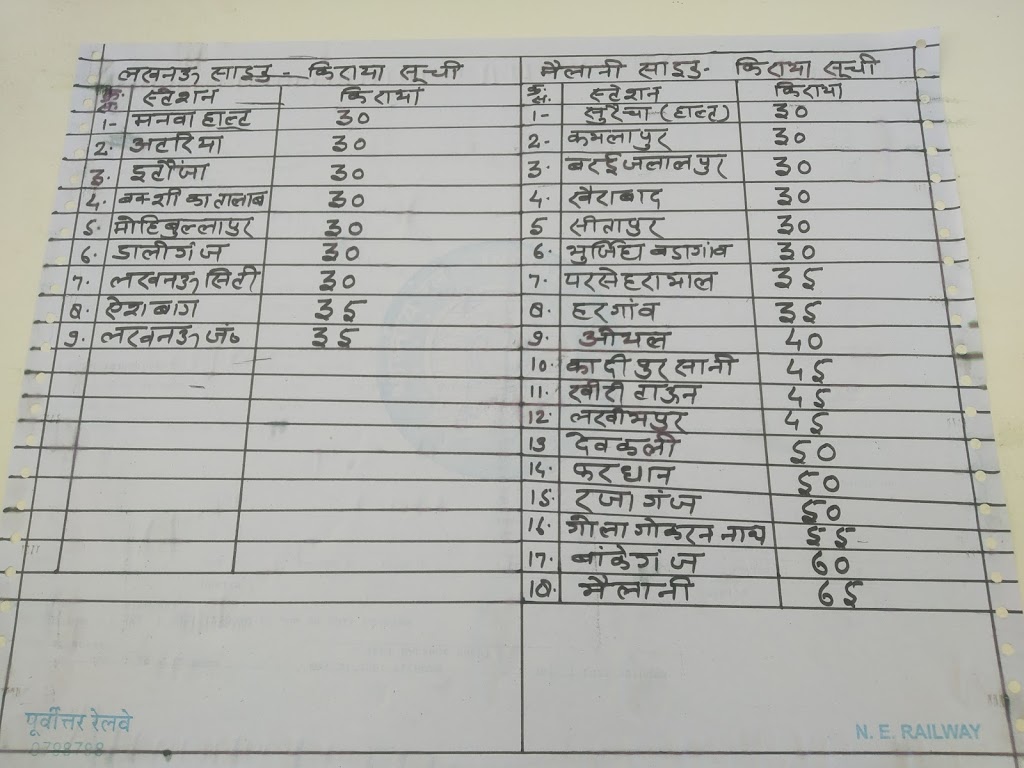 लखनऊ साइड - किराया सूची
क्र. सं. स्टेशन किराया
1- मनवा हाल्ट 30
2. अटरिया 30
3. इटौंजा 30
4. बक्शी का तालाब 30
5. मोहिबुल्लापुर 30
6. डालीगंज 30
7. लखनऊ सिटी 30
8. ऐशबाग 35
9. लखनऊ जं० 35
मैलानी साइड- किराया सूची
क्र. सं. स्टेशन किराया
1- सुरैचा (हाल्ट) 30
2- कमलापुर 30
3. बरई जलालपुर 30
4. खैराबाद 30
5 सीतापुर 30
6. झुर्जिघि बडागांव 30
7- परसेहरा माल 35
8. हरगांव 35
9. ओयल 40
10. कादीपुर सानी 45
11. खीरी टाऊन 45
12. लखीमपुर 45
13 देवकली 50
14. फरधान 50
15. रजागंज 50
16. गोला गोकरन नाथ 55
17. बांकेगंज 60
18. मैलानी 65
पूर्वोत्तर रेलवे
0798798
N. E. RAILWAY